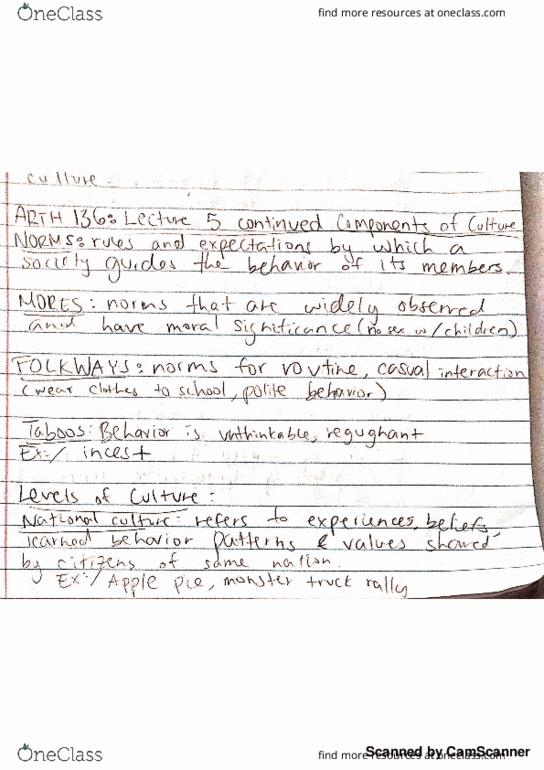 OneClass
find more resources at oneclass.com
culture
ARTH 136: Lecture 5 continued Components of Culture
NORMS: rules and expectations by which a
society guides the behavior of its members.
MORES: norms that are widely observed
and have moral significance (no sex w/children)
FOLKWAYS: norms for routine, casual interaction
(wear clothes to school, polite behavior)
Taboos: Behavior is unthinkable, regughant
Ex:/ incest
Levels of Culture:
National culture: refers to experiences, beliefs
learned behavior patterns & values showed
by citizens of same nation.
Ex:/ Apple pie, monster truck rally
OneClass
find more resources at oneclass.com
Scanned by CamScanner